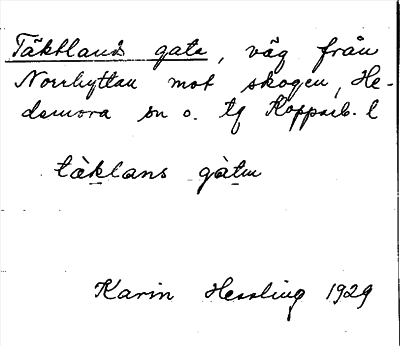 Täktlands gata, väg från
Norrhyttan mot skogen, He-
demora sn o. tg Kopparb. l
tàklans gàtɯ
Karin Hessling 1929